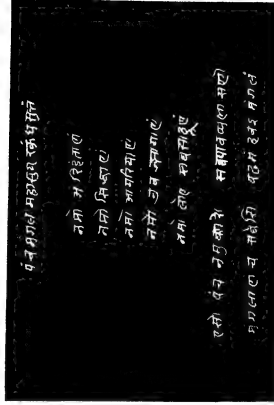 पंच मंगल महासुअ स्कंध सुत्तं
नमो अरिहंताणं
नमो सिद्धाणं
नमो आयरियाणं
नमो उवज्झायाणं
नमो लोए सव्वसाहूणं
एसो पंच नमुक्कारो सव्वपावप्पणासणो
मंगलाणं च सव्वेसिं पढमं हवइ मंगलं